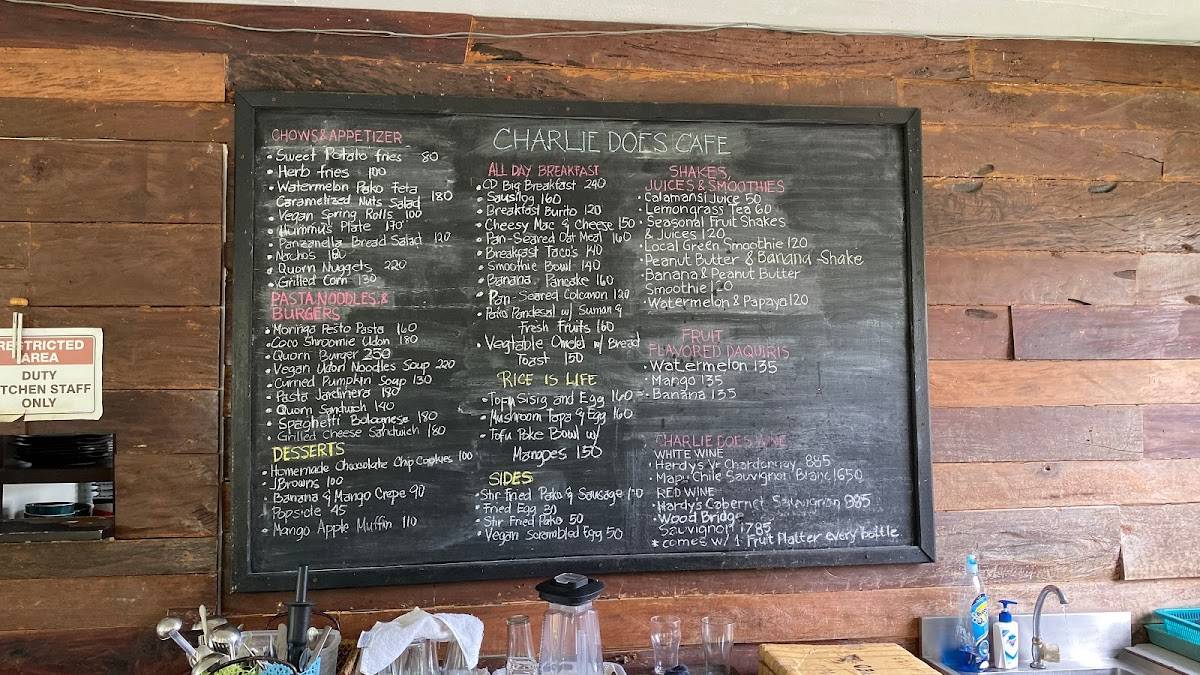 CHARLIE DOES CAFE
CHOWS & APPETIZER
• Sweet Potato fries 80
• Herb fries 100
• Watermelon Pako Feta
Caramelized Nuts Salad 180
• Vegan Spring Rolls 100
• Hummus Plate 170
• Panzanella Bread Salad 120
• Nacho's
• Quorn Nuggets 220
• Grilled Corn 130
PASTA, NOODLES, &
BURGERS
• Moringa Pesto Pasta 160
• Coco Shroomie Udon 180
• Quorn Burger 250
• Vegan Udon Noodles Soup 220
• Curried Pumpkin Soap 130
• Pasta Jardinera 180
• Quorn Sandwich 140
• Spaghetti Bolognese 180
• Grilled Cheese Sandwich 180
DESSERTS
• Homemade Chocolate Chip Cookies 100
• JBrowns 100
• Banana & Mango Crepe 90
• Popsicle 45
• Mango Apple Muffin 110
ALL DAY BREAKFAST
• CD Big Breakfast 240
• Sausilog 160
• Breakfast Burito 120
• Cheesy Mac & Cheese 150
• Pan-Seared Oat Meal 160
• Breakfast Taco's 140
• Smoothie Bowl 140
• Banana Pancake 160
• Pan-Seared Colcanon 120
• Pako Pandesal w/ Suman &
Fresh Fruits 160
• Vegtable Omelet w/ Bread
Toast 150
RICE IS LIFE
• Tofu Sisig and Egg 160
• Mushroom Tapa & Egg 160
• Tofu Poke Bowl w/
Mangoes 150
SIDES
• Stir Fried Pako & Sausage
• Fried Egg
• Stir Fried Pako 50
• Vegan Scrambled Egg 50
SHAKES,
JUICES & SMOOTHIES
• Calamansi Juice 50
• Lemongrass Tea 60
• Seasonal Fruit Shakes
& Juices 120
• Local Green Smoothie 120
• Peanut Butter & Banana Shake
• Banana & Peanut Butter
Smoothie 120
• Watermelon & Papaya 120
FRUIT
FLAVORED DAQUIRIS
• Watermelon 135
• Mango 135
• Banana 135
CHARLIE DOES WINE
WHITE WINE
• Hardys Vr Chardonnay 885
• Mapu Chile Sauvignon Blanc 1650
RED WINE
• Hardys Cabernet Sauvignon 885
• Wood Bridge
Sauvignon 1785
* comes w/ 1 Fruit Platter every bottle
RESTRICTED
AREA
DUTY
KITCHEN STAFF
ONLY